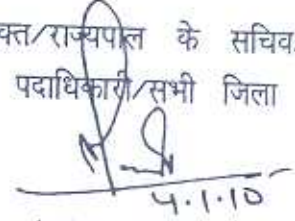 क्त/राज्यपाल के सचिव
पदाधिकारी/सभी जिला
4.1.10